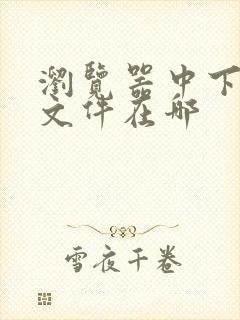 瀏覽器中下
文件在哪
雪夜千卷